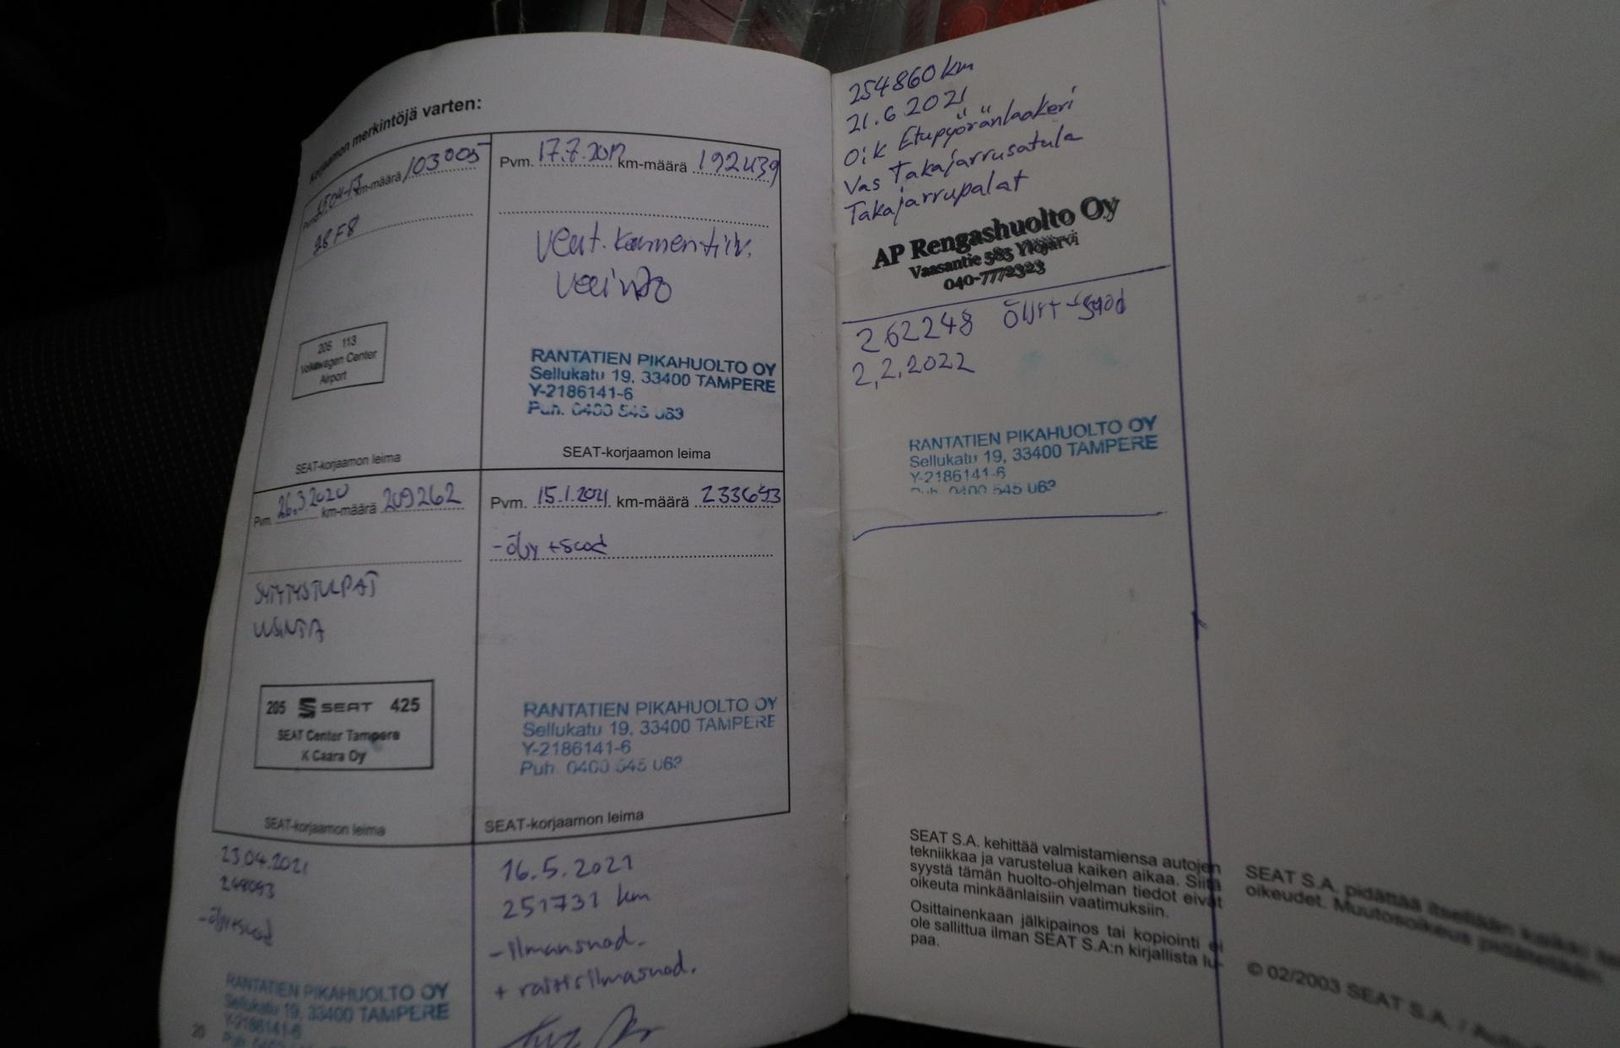 Korjaamon merkintöjä varten:
km-määrä 103005
28F8
205 113
Volkswagen Center
Airport
SEAT-korjaamon leima
Pvm. 17.7.2019 km-määrä 192439
Vent. kammentiiv.
RANTATIEN PIKAHUOLTO OY
Sellukatu 19, 33400 TAMPERE
Y-2186141-6
Puh. 0400 545 063
SEAT-korjaamon leima
Pvm. 26.3.2020 km-määrä 209262
SYTYTYSTULPAT
UUSINTA
205 SEAT 425
SEAT Center Tampere
K Caara Oy
SEAT-korjaamon leima
Pvm. 15.1.2021 km-määrä 233693
-öljy +suod
RANTATIEN PIKAHUOLTO OY
Sellukatu 19, 33400 TAMPERE
Y-2186141-6
Puh. 0400 545 063
SEAT-korjaamon leima
23.04.2021
248093
-öljy+suod
RANTATIEN PIKAHUOLTO OY
Sellukatu 19, 33400 TAMPERE
Y-2186141-6
20
16.5.2021
251731 km
-ilmansuod.
+ raitisilmasuod.
254860 km
21.6.2021
Oik Etupyöränlaakeri
Vas Takajarrusatula
Takajarrupalat
AP Rengashuolto Oy
Vaasantie 585 Ylöjärvi
040-7772323
262248 Öljyt+suod
2.2.2022
RANTATIEN PIKAHUOLTO OY
Sellukatu 19, 33400 TAMPERE
Y-2186141-6
Puh. 0400 545 063
SEAT S.A. kehittää valmistamiensa autojen
tekniikkaa ja varustelua kaiken aikaa. Siitä
syystä tämän huolto-ohjelman tiedot eivät
oikeuta minkäänlaisiin vaatimuksiin.
Osittainenkaan jälkipainos tai kopiointi ei
ole sallittua ilman SEAT S.A:n kirjallista lu-
paa.
SEAT S.A. pidättää itsellään kaikki
oikeudet. Muutosoikeus pidätetään.
© 02/2003 SEAT S.A. /